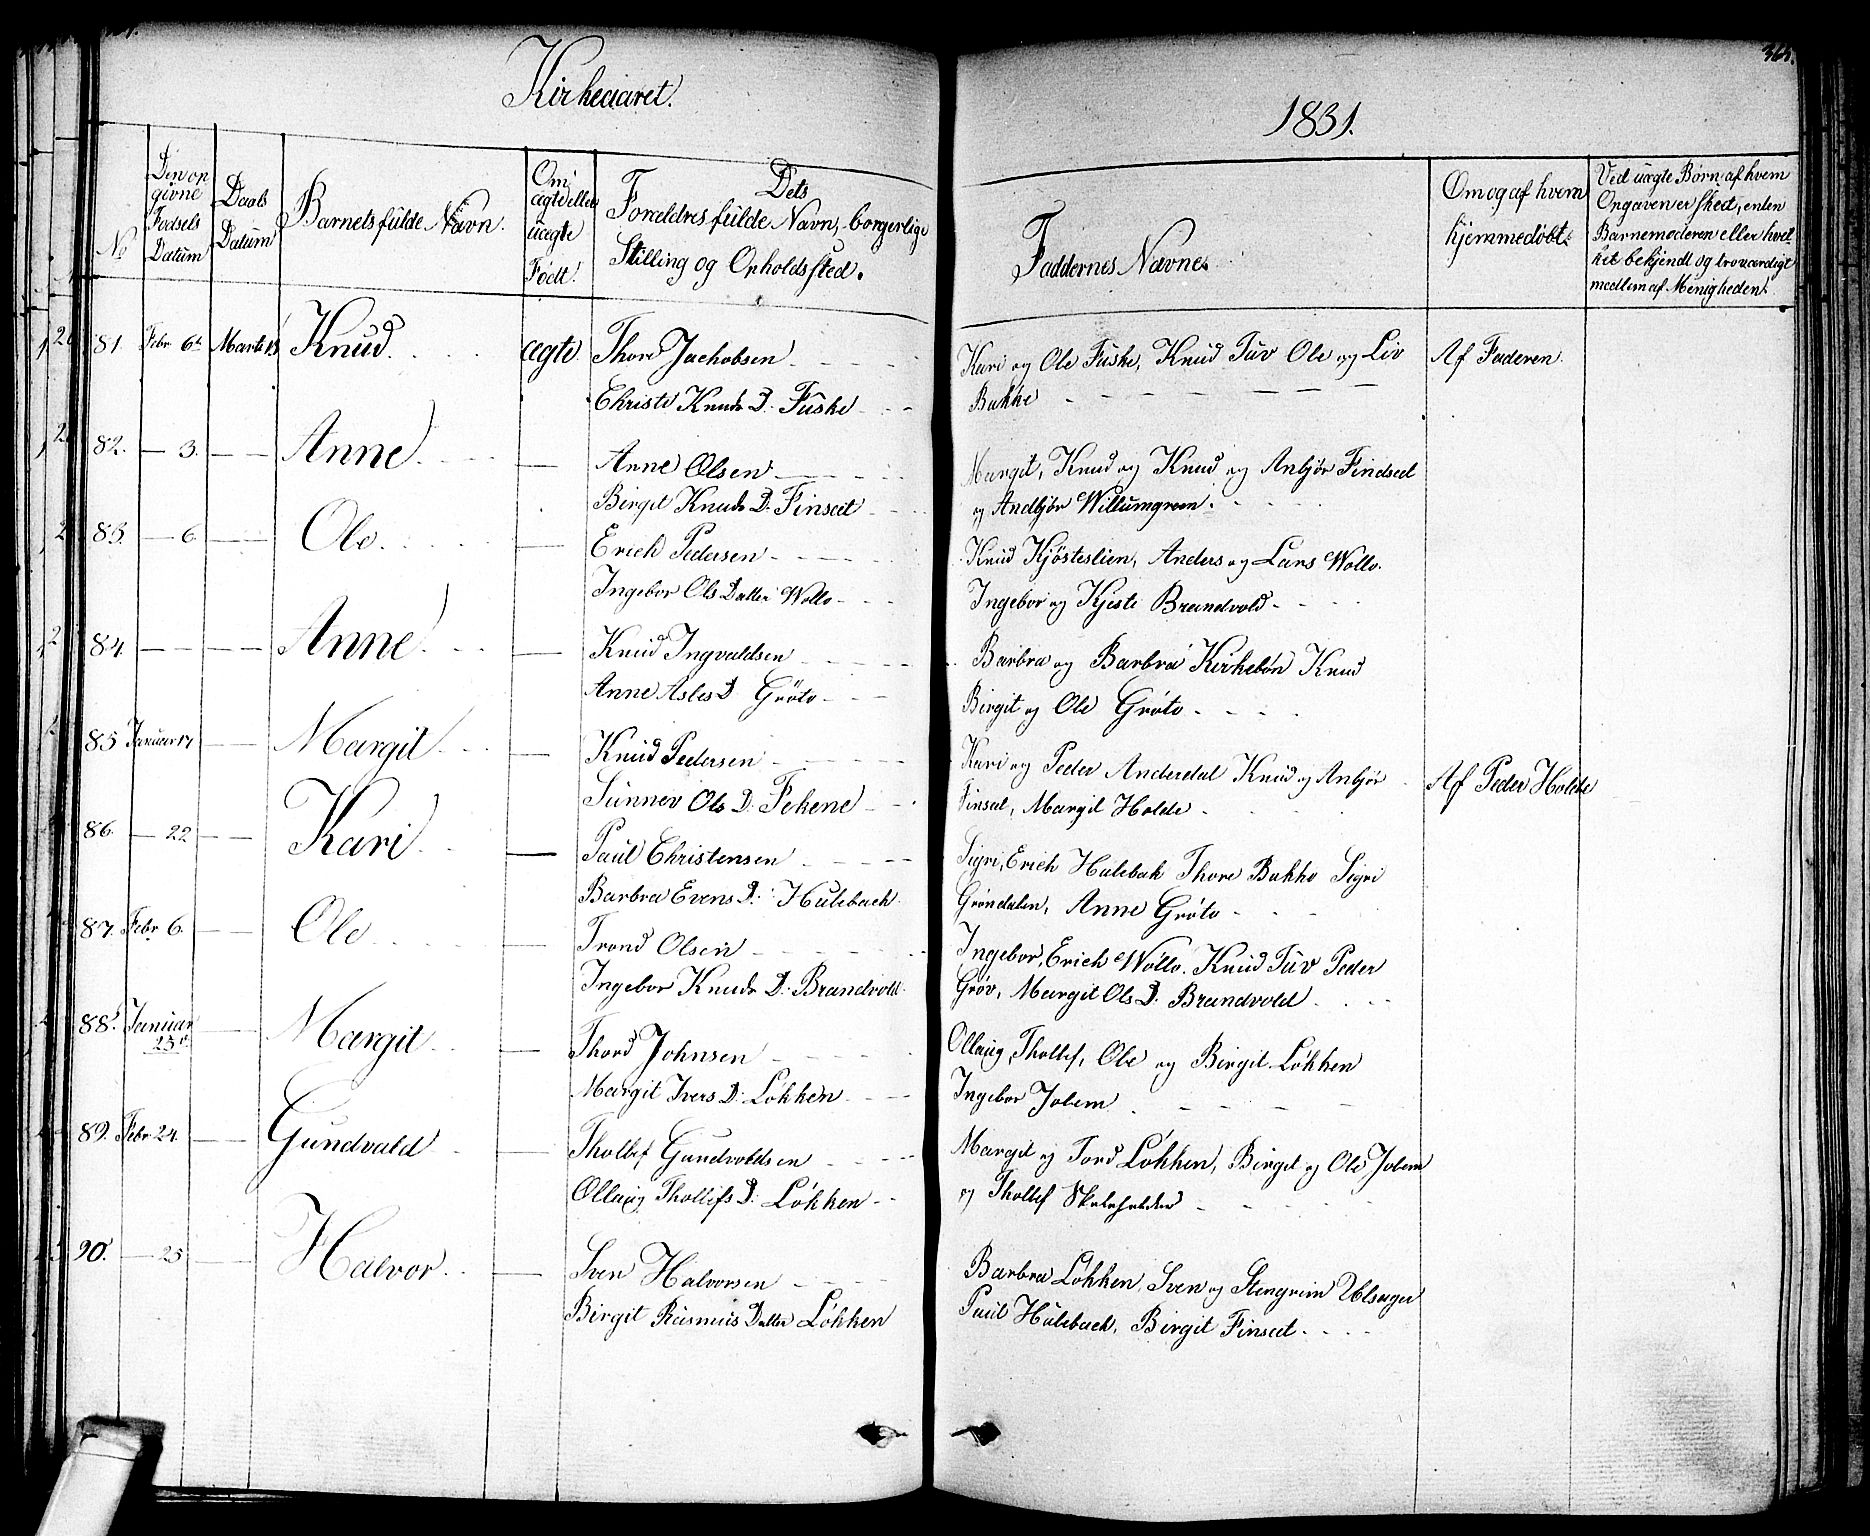 Kirkeaaret.
1831.
No
Den opgivne Fødsels Datum
Daabs Datum
Barnets fulde Navn.
Om ægte eller uægte Født.
Dets Forældres fulde Navn, borgerlige Stilling og Opholdssted.
Faddernes Navne.
Om og af hvem hjemmedøbt.
Ved uægte Børn af hvem Opgaven er skeet, enten Barnemoderen eller hvilket bekjendt og troværdigt medlem af Menigheden.
81. Febr 6te Marts 13 Knud. ægte Thord Jachobsen Kari og Ole Fuske, Knud Tuv Ole og Liv Af Faderen.
Christi Knuds D. Fuske Bakke
82. — 3. — Anne — Arne Olsen Margit, Knud og Knud og Anbjør Findset
Birgit Knuds D. Finset og Andbjør Willumgreen.
83. — 6 — Ole — Erich Pedersen Knud Kjösteslien, Anders og Lars Wollo.
Ingebor Ols Datter Wollo Ingebor og Kjesti Brandvold
84. — — Anne — Knud Ingvaldsen Barbra og Barbra Kirkebøn Knud
Anne Asles D. Grøto Birgit og Ole Grøto
85 Januar 17 — Margit — Knud Pedersen Kari og Peder Anderdal Knud og Anbjør Af Peder Holde
Sunnev Ols D. Fekene Finset, Margit Holde
86. — 22 — Kari — Paul Christensen Sigri, Erich Hulebak Thore Bakko Sigri
Barbra Evens D. Hulebach Grøndalen, Anne Grøto
87. Febr 6. — Ole — Trond Olsen Ingebor, Erich Wøllo. Knud Tuv Peder
Ingebor Knuds D. Brandvold Grøv, Margit Ols D. Brandvold
88. Januar 23de — Margit — Thord Johnsen Ollaug, Thollef, Ole og Birgit Løkken
Margit Ivers D. Løkken Ingebor Jolem
89. Febr 24. — Gundvald — Thollef Gundvoldsen Margit og Tord Løkken, Birgit og Ole Jolem
Ollaug Thollefs D. Løkken og Thollef
90. — 25 — Halvor — Sven Halvorsen Barbra Løkken, Sven og Stengrim Ulsager
Birgit Rasmus Datter Løkken Paul Hulebach, Birgit Finset